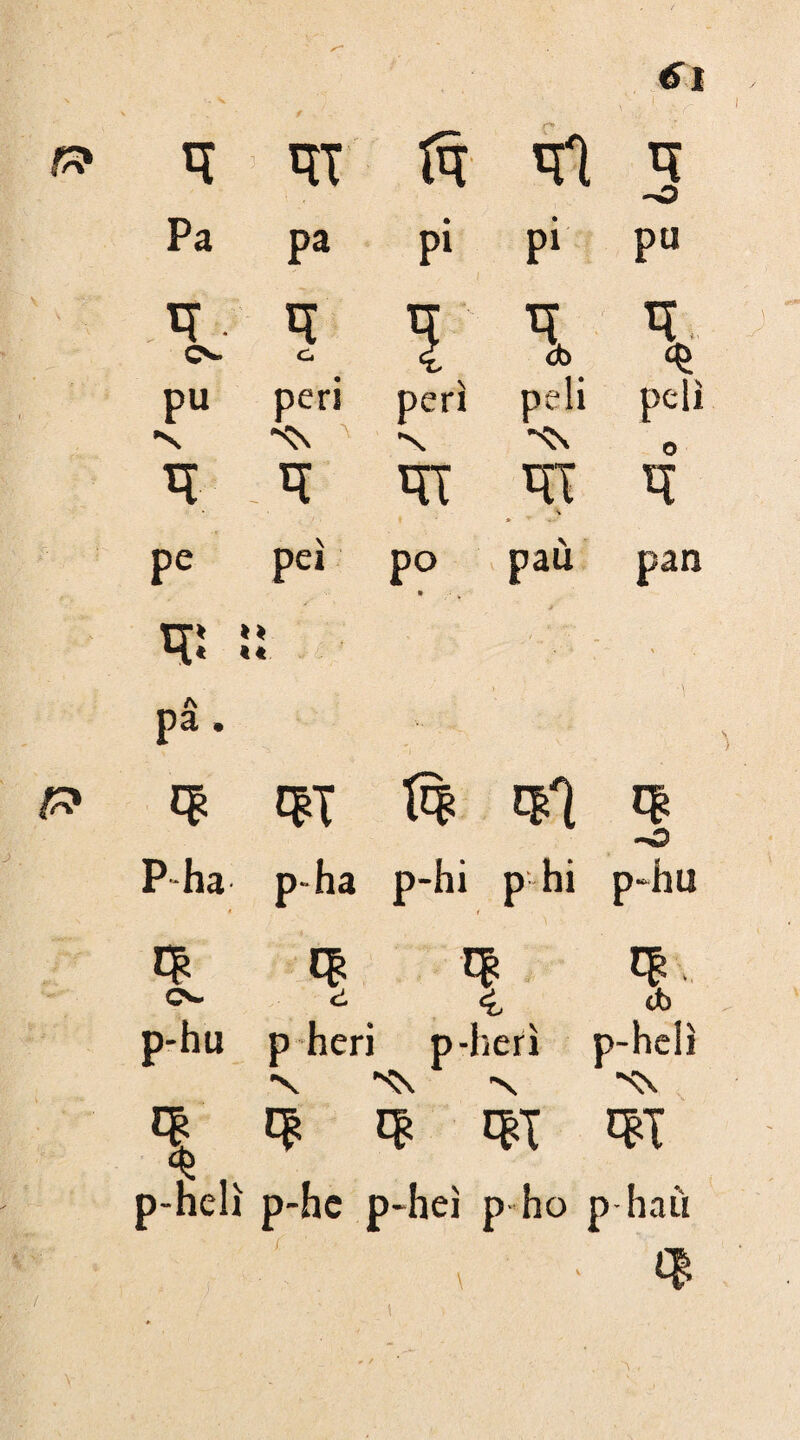 61
प पा पि पी पु
Pa pa pi pi pu
पू पृ पॄ पॢ पॣ
pu peri perì peli pelì
पे पै पो पौ पं
pe peì po paù pan
पः ॥
pâ.
फ फा फि फी फु
P-ha p-ha p-hi p-hi p-hu
फू फृ फॄ फॢ
p-hu p heri p-herì p-helì
फॣ फे फै फो फौ
p-helì p-he p-heì p-ho p-haù
फ